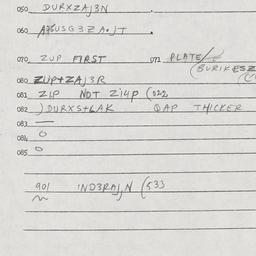 050 DURXZAJ3N
060 A76USG3ZA.JT
070 ZUP FIRST 071 PLATE/
(BURIKESZ
080 ZUP+ZAJ3R
081 ZIP NOT ZI4P (022
082 )DURXS+LAK QAP THICKER
083 —
084 O
085 O
901 IND3RAJ,N (533